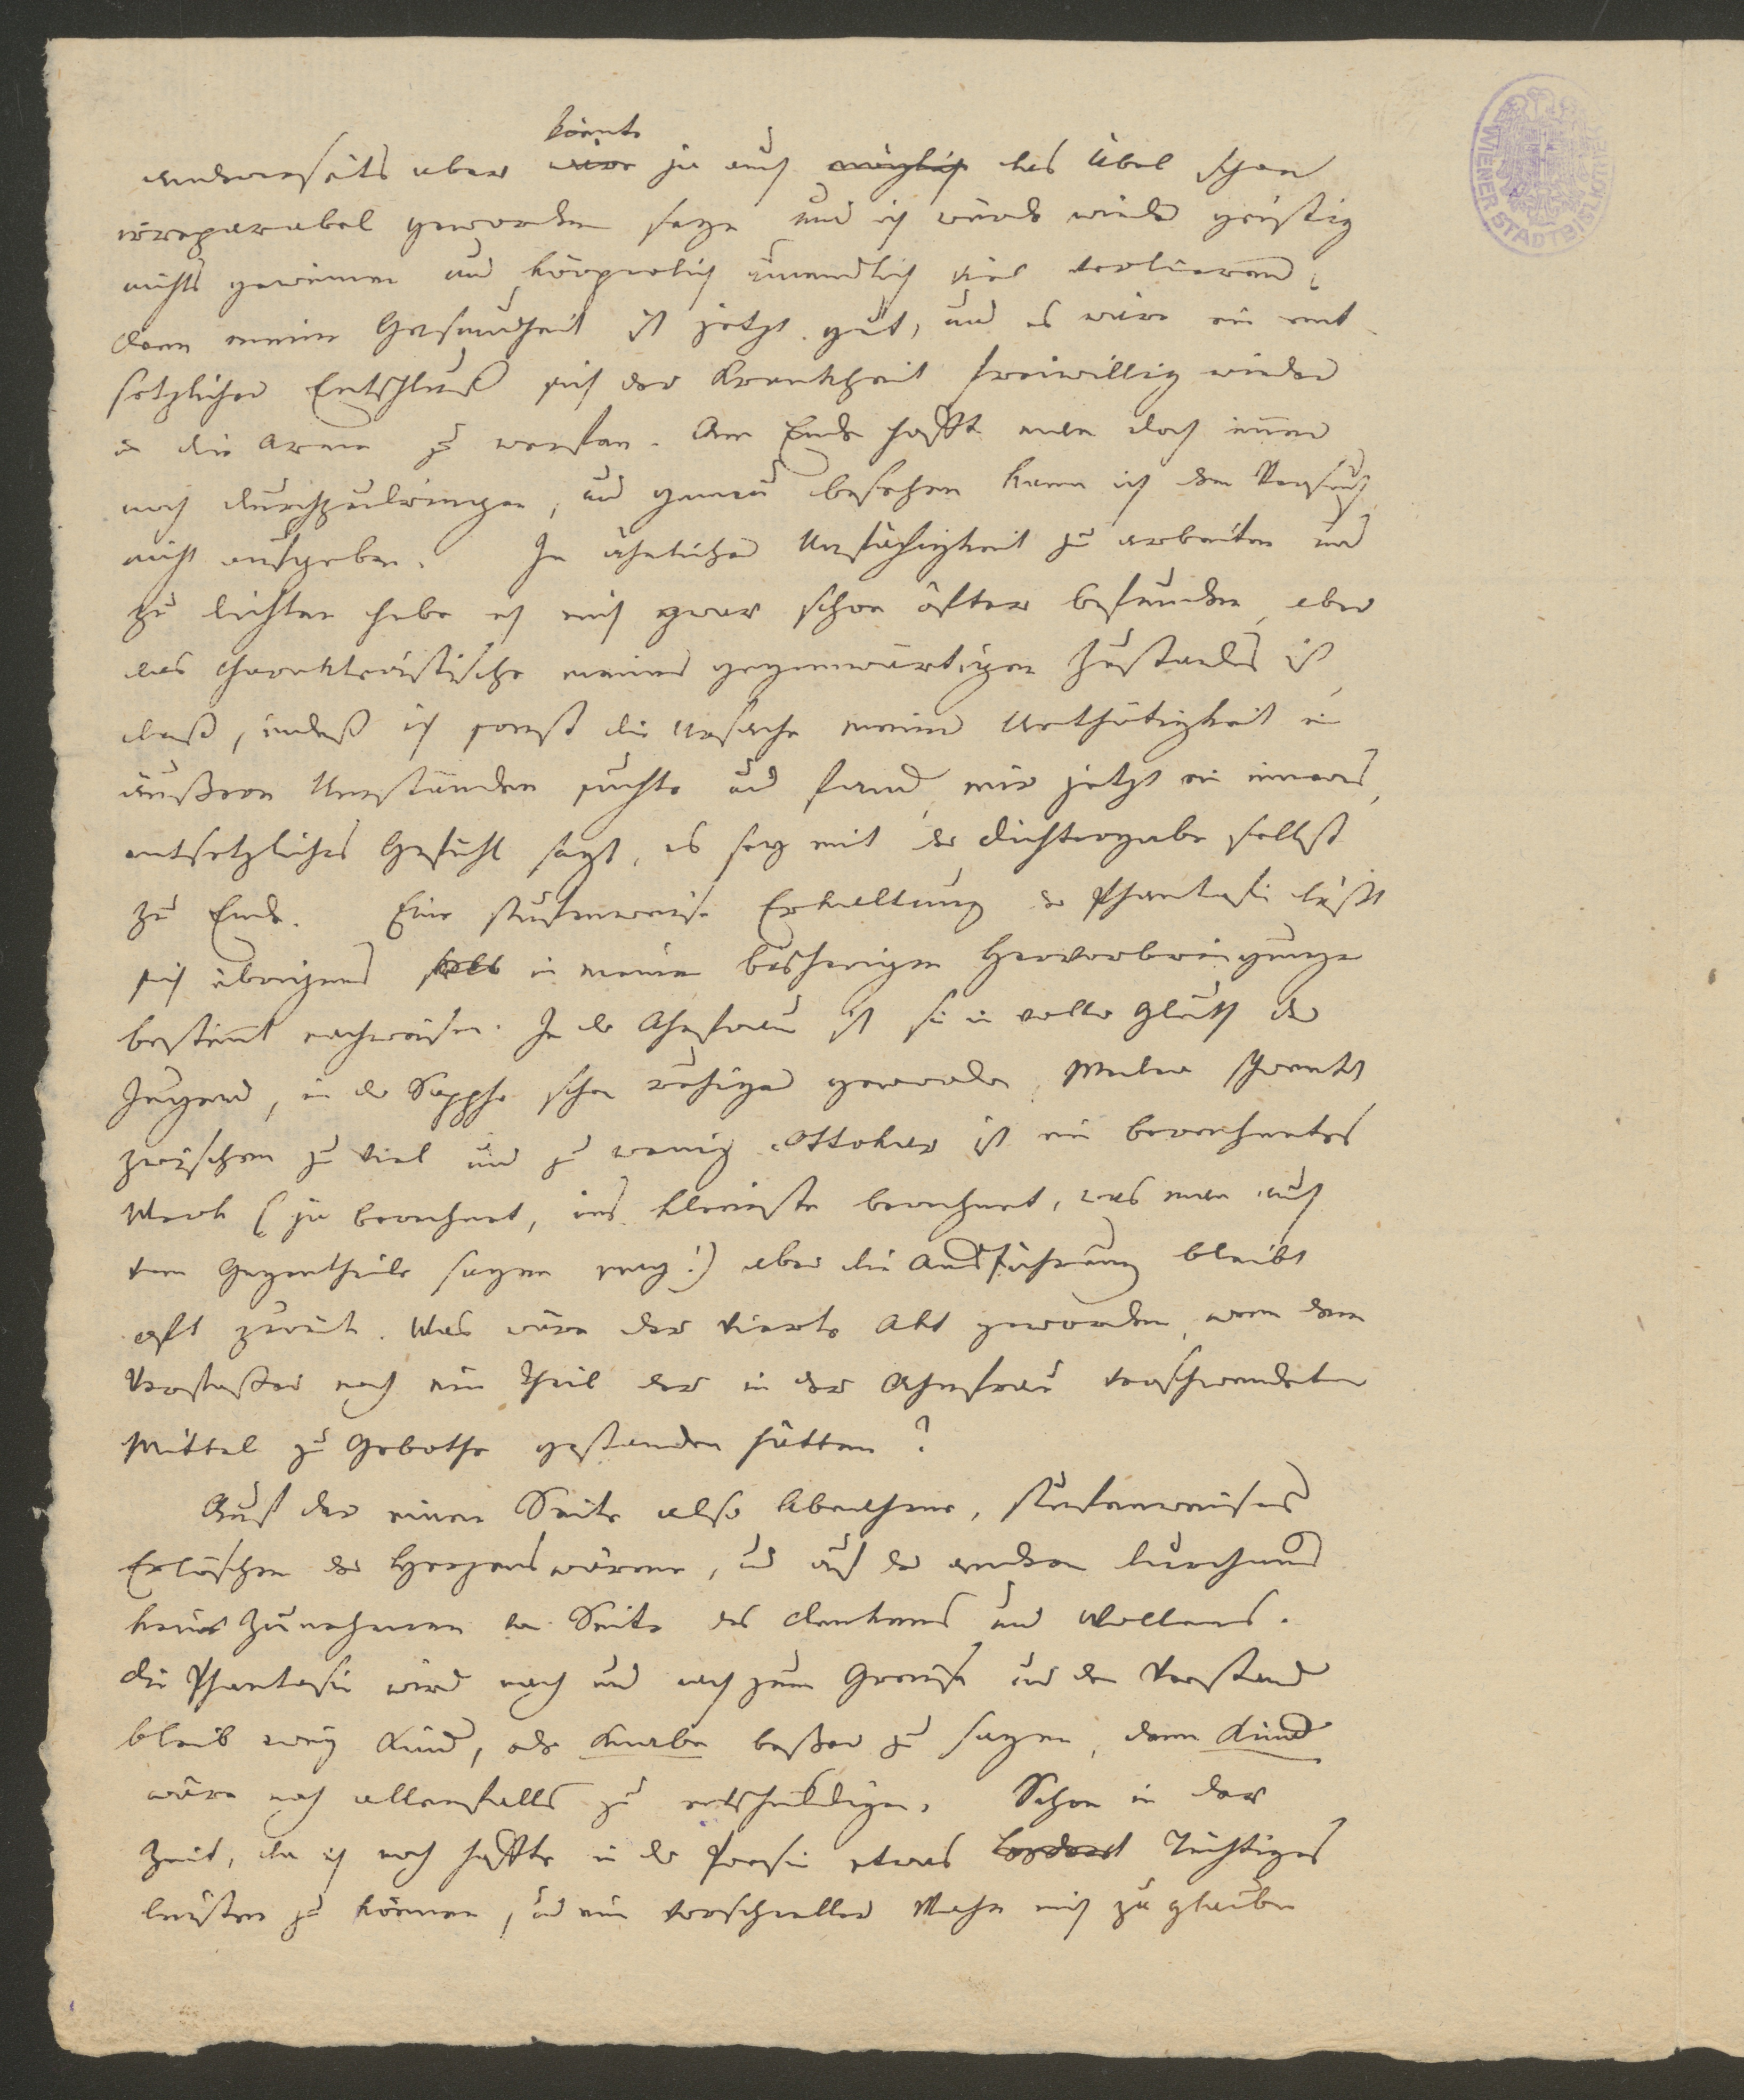 könnte
anderseits aber wäre ja auch möglich das Übel schon
irreparabel geworden seyn und ich würde wieder geistig
nichts gewinnen und körperlich unendlich viel verlieren;
denn meine Gesundheit ist jetzt gut, und es wäre ein ent-
setzlicher Entschluß sich der Krankheit freiwillig wieder
in die Arme zu werfen. Am Ende hofft man doch immer
noch durchzudringen, und genau besehen kann ich den Versuch
nicht aufgeben. In ähnlicher Unfähigkeit zu arbeiten und
zu dichten habe ich mich zwar schon öfter befunden, aber
das charakteristische meines gegenwärtigen Zustandes ist,
daß, indeß ich sonst die Ursache meiner Unthätigkeit in
äußern Umständen suchte und fand, mir jetzt ein inneres,
entsetzliches Gefühl sagt, es sey mit der Dichtergabe selbst
zu Ende. Eine stufenweise Erkaltung der Phantasie läßt
sich übrigens selbst in meinen bisherigen Hervorbringungen
bestimmt nachweisen. In der Ahnfrau ist sie in voller Gluth der
Jugend, in der Sappho schon ruhiger geworden, Medea schwankt
zwischen zu viel und zu wenig. Ottokar ist ein berechnetes
Werk (ja berechnet, ins kleinste berechnet, was man auch
vom Gegentheile sagen mag!) aber die Ausführung bleibt
oft zurück. Was wäre der vierte Akt geworden, wenn dem
Verfasser noch ein Theil der in der Ahnfrau verschwendeten
Mittel zu Gebothe gestanden hätten?
Auf der einen Seite also Abnahme, stufenweises
Erlöschen der Herzenswärme, und auf der andern durchaus
kein Zunehmen von Seite des Denkens und Wollens.
Die Phantasie wird nach und nach zum Greise und der Verstand
bleib ewig Kind, oder Knabe besser zu sagen, denn Kind
wäre noch allenfalls zu entschuldigen. Schon in der
Zeit, da ich noch hoffte in der Poesie etwas Tüchtiges
leisten zu können, und ein vorschneller Wahn mich zu glauben
WIENER STADTBIBLIOTHEK